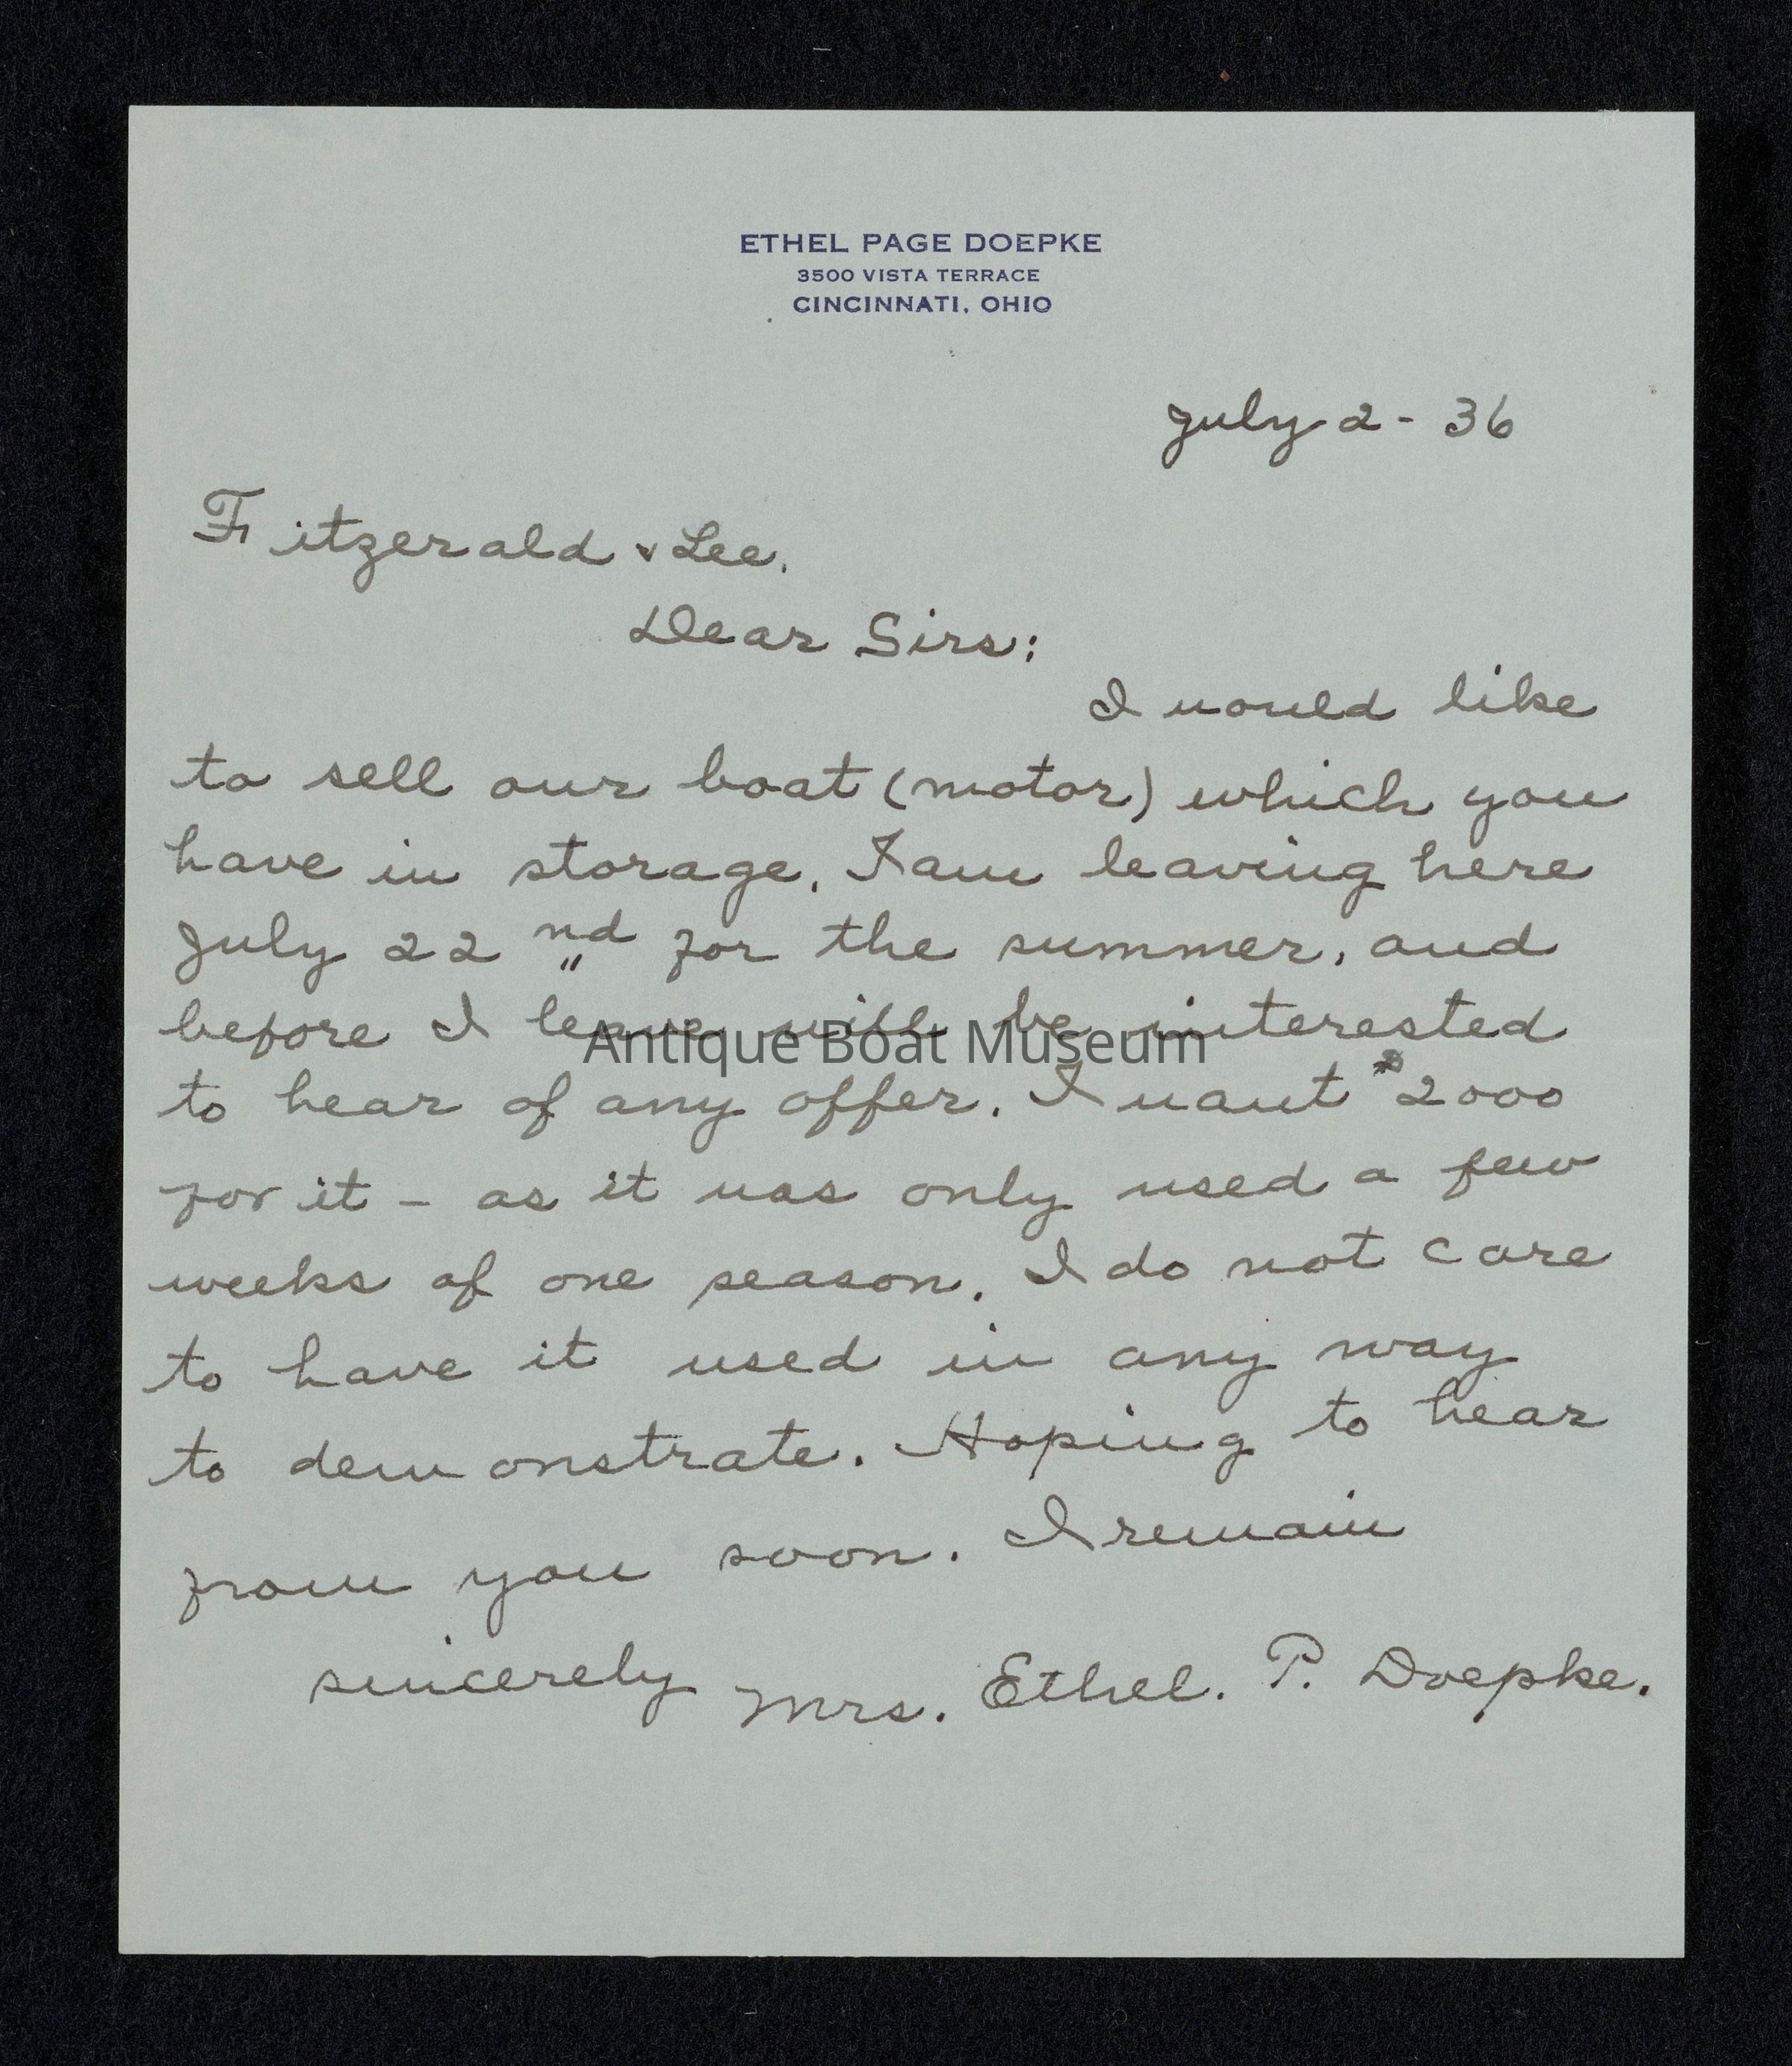 ETHEL PAGE DOEPKE
3500 VISTA TERRACE
CINCINNATI, OHIO
July 2 - 36
Fitzgerald & Lee.
Dear Sirs:
I would like
to sell our boat (motor) which you
have in storage. I am leaving here
July 22 nd for the summer, and
before I leave will be interested
to hear of any offer. I want $2000
for it - as it was only used a few
weeks of one season. I do not care
to have it used in any way
to demonstrate. Hoping to hear
from you soon. I remain
sincerely Mrs. Ethel. P. Doepke.
Antique Boat Museum